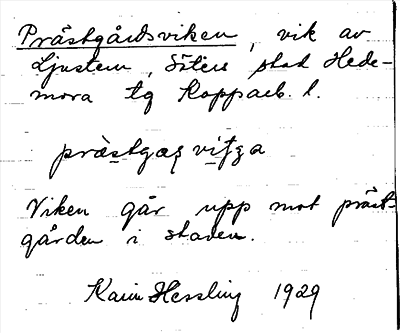 Prästgårdsviken, vik av
Ljustern, Säters stad Hede-
mora tg Kopparb. l.
prästgaṣ vitʒa
Viken går upp mot präst-
gården i staden.
Karin Hessling 1929